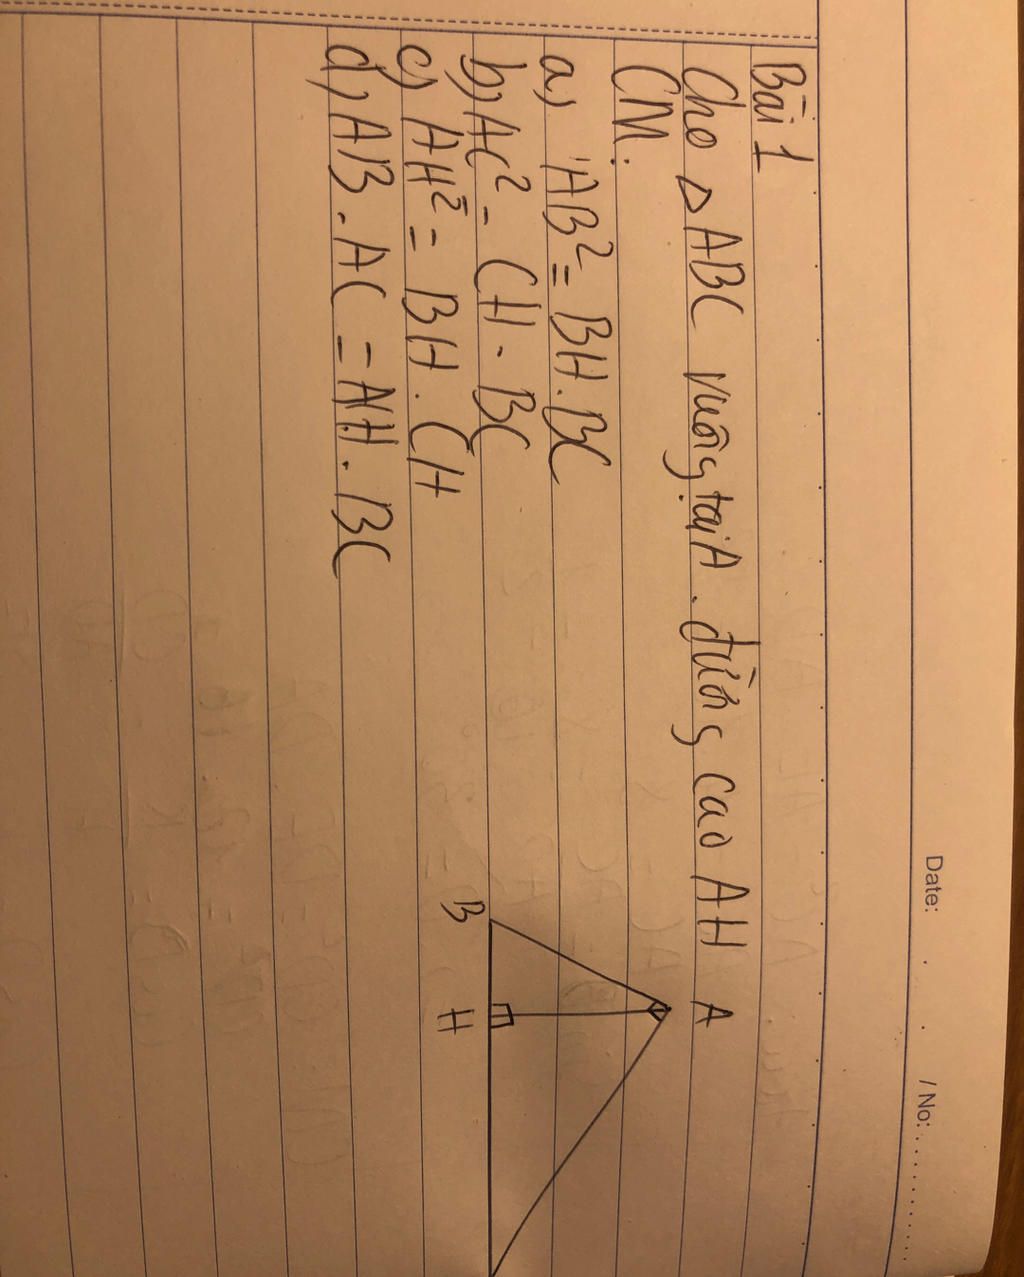 Date: . . / No: ..........
Bài 1
Cho △ABC vuông tại A. đường cao AH
CM:
a) AB² = BH.BC
b) AC² = CH.BC
c) AH² = BH.CH
d) AB.AC = AH.BC
A
B
H